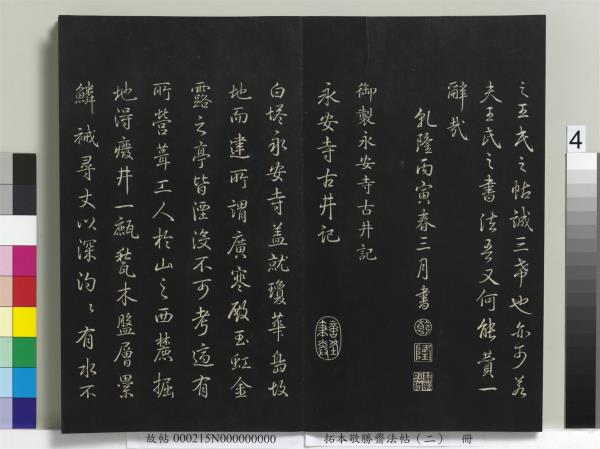 之王氏之帖誠三希也亦可若
夫王氏之書法吾又何能贊一
辭哉
乾隆丙寅春三月書
乾
隆
御製永安寺古井記
永安寺古井記
白塔永安寺盖就瓊華島故
地而建所謂廣寒殿玉虹金
露之亭皆湮没不可考適有
所營葺工人於山之西麓掘
地得廢井一甃木盤層累
鱗堿尋丈以深沟々有水不
4
故帖 000215N000000000 拓本敬勝齋法帖（二） 冊